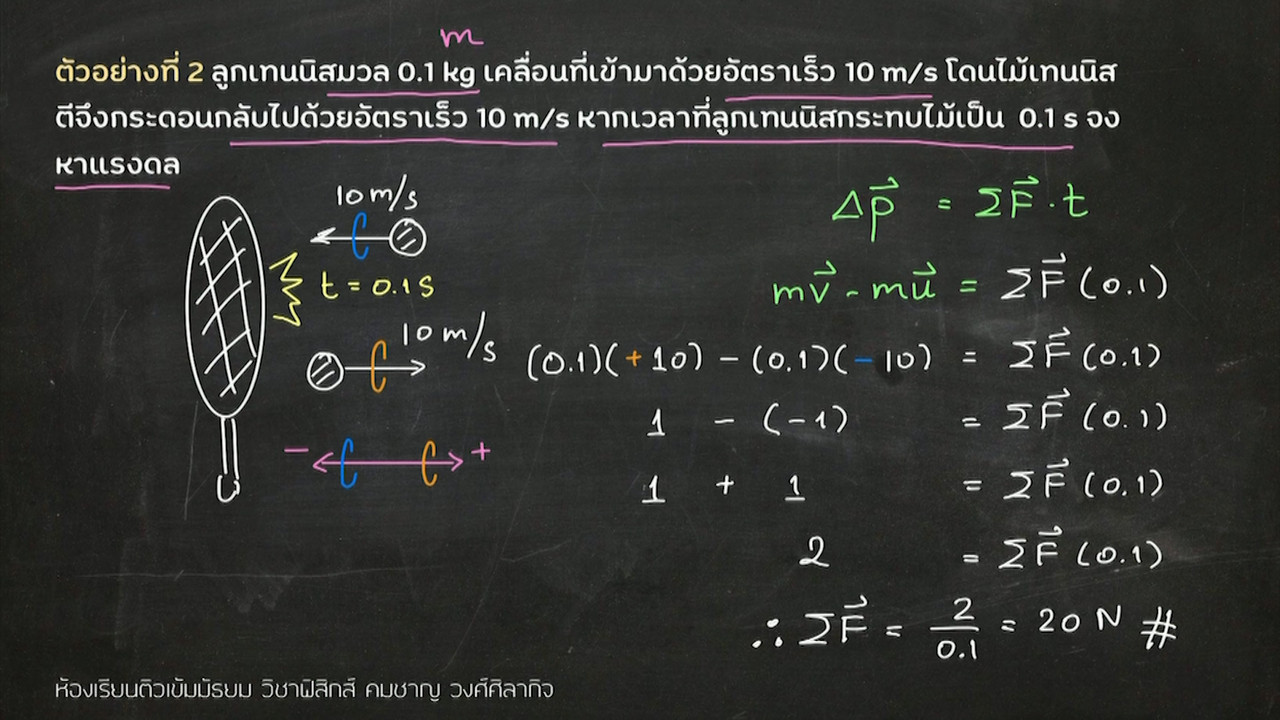 m
ตัวอย่างที่ 2 ลูกเทนนิสมวล 0.1 kg เคลื่อนที่เข้ามาด้วยอัตราเร็ว 10 m/s โดนไม้เทนนิส
ตีจึงกระดอนกลับไปด้วยอัตราเร็ว 10 m/s หากเวลาที่ลูกเทนนิสกระทบไม้เป็น 0.1 s จง
หาแรงดล
10 m/s
t = 0.1 s
10 m/s
− +
Δp⃗ = ΣF⃗ · t
mv⃗ - mu⃗ = ΣF⃗ (0.1)
(0.1)(+10) − (0.1)(−10) = ΣF⃗ (0.1)
1 - (-1) = ΣF⃗ (0.1)
1 + 1 = ΣF⃗ (0.1)
2 = ΣF⃗ (0.1)
∴ ΣF⃗ = 2/0.1 = 20 N #
ห้องเรียนติวเข้มมัธยม วิชาฟิสิกส์ คมชาญ วงศ์ศิลากิจ